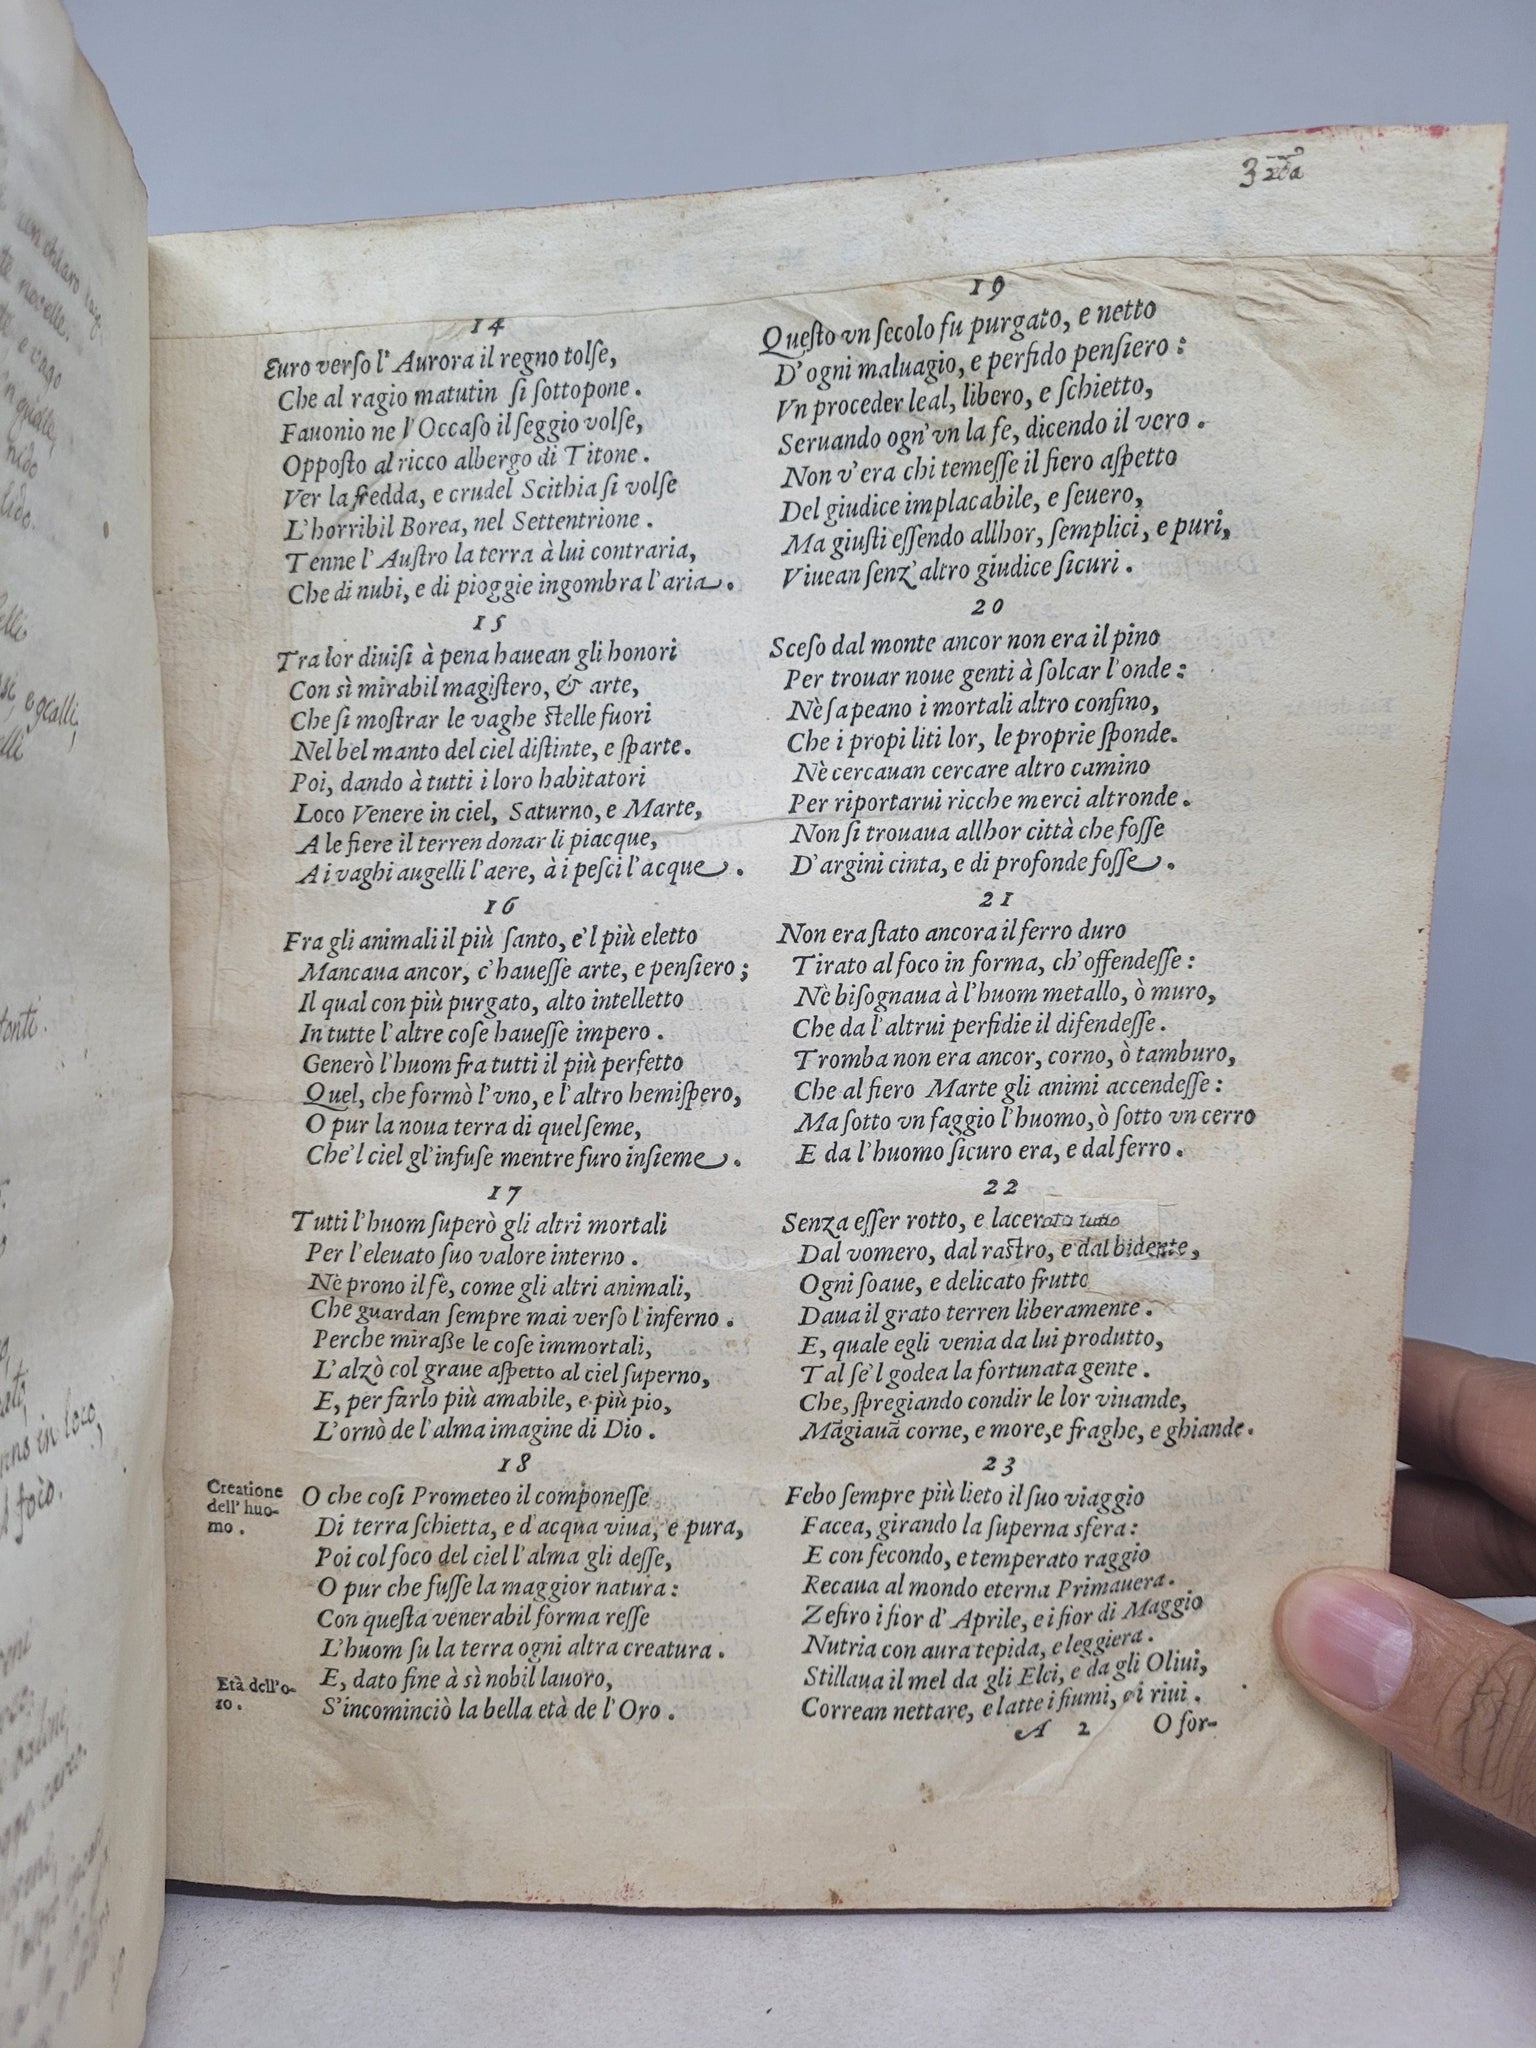 14
Euro verſo l'Aurora il regno tolſe,
Che al ragio matutin ſi ſottopone.
Fauonio ne l'Occaſo il ſeggio volſe,
Oppoſto al ricco albergo di Titone.
Ver la fredda, e crudel Scithia ſi volſe
L'horribil Borea, nel Settentrione.
Tenne l'Auſtro la terra à lui contraria,
Che di nubi, e di pioggie ingombra l'aria.
15
Tra lor diuiſi à pena hauean gli honori
Con sì mirabil magiſtero, & arte,
Che ſi moſtrar le vaghe ſtelle fuori
Nel bel manto del ciel diſtinte, e ſparte.
Poi, dando à tutti i loro habitatori
Loco Venere in ciel, Saturno, e Marte,
A le fiere il terren donar li piacque,
A i vaghi augelli l'aere, à i peſci l'acque.
16
Fra gli animali il più ſanto, e'l più eletto
Mancaua ancor, c'haueſſe arte, e penſiero;
Il qual con più purgato, alto intelletto
In tutte l'altre coſe haueſſe impero.
Generò l'huom fra tutti il più perfetto
Quel, che formò l'vno, e l'altro hemiſpero,
O pur la noua terra di quel ſeme,
Che'l ciel gl'infuſe mentre furo inſieme.
17
Tutti l'huom ſuperò gli altri mortali
Per l'eleuato ſuo valore interno.
Nè prono il fè, come gli altri animali,
Che guardan ſempre mai verſo l'inferno.
Perche miraße le coſe immortali,
L'alzò col graue aſpetto al ciel ſuperno,
E, per farlo più amabile, e più pio,
L'ornò de l'alma imagine di Dio.
18
Creatione
dell'huo-
mo.
O che coſi Prometeo il componeſſe
Di terra ſchietta, e d'acqua viua, e pura,
Poi col foco del ciel l'alma gli deſſe,
O pur che fuſſe la maggior natura:
Con queſta venerabil forma reſſe
L'huom ſu la terra ogni altra creatura.
Età dell'o-
ro.
E, dato fine à sì nobil lauoro,
S'incominciò la bella età de l'Oro.
19
Queſto vn ſecolo fu purgato, e netto
D'ogni maluagio, e perfido penſiero:
Vn proceder leal, libero, e ſchietto,
Seruando ogn'vn la fe, dicendo il vero.
Non v'era chi temeſſe il fiero aſpetto
Del giudice implacabile, e ſeuero,
Ma giuſti eſſendo allhor, ſemplici, e puri,
Viuean ſenz'altro giudice ſicuri.
20
Sceſo dal monte ancor non era il pino
Per trouar noue genti à ſolcar l'onde:
Nè ſapeano i mortali altro confino,
Che i propi liti lor, le proprie ſponde.
Nè cercauan cercare altro camino
Per riportarui ricche merci altronde.
Non ſi trouaua allhor città che foſſe
D'argini cinta, e di profonde foſſe.
21
Non era ſtato ancora il ferro duro
Tirato al foco in forma, ch'offendeſſe:
Nè biſognaua à l'huom metallo, ò muro,
Che da l'altrui perfidie il difendeſſe.
Tromba non era ancor, corno, ò tamburo,
Che al fiero Marte gli animi accendeſſe:
Ma ſotto vn faggio l'huomo, ò ſotto vn cerro
E da l'huomo ſicuro era, e dal ferro.
22
Senza eſſer rotto, e lacerato tutto
Dal vomero, dal raſtro, e dal bidente,
Ogni ſoaue, e delicato frutto
Daua il grato terren liberamente.
E, quale egli venia da lui produtto,
Tal ſe'l godea la fortunata gente.
Che, ſpregiando condir le lor viuande,
Mãgiauã corne, e more, e fraghe, e ghiande.
23
Febo ſempre più lieto il ſuo viaggio
Facea, girando la ſuperna sfera:
E con fecondo, e temperato raggio
Recaua al mondo eterna Primauera.
Zefiro i fior d'Aprile, e i fior di Maggio
Nutria con aura tepida, e leggiera.
Stillaua il mel da gli Elci, e da gli Oliui,
Correan nettare, e latte i fiumi, e i riui.
A 2 O for-